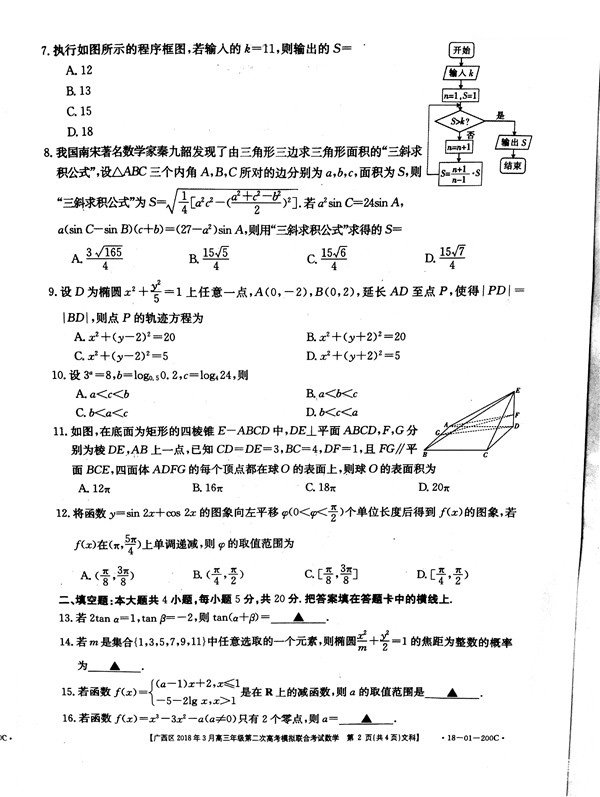 7.执行如图所示的程序框图,若输入的k=11,则输出的S=
A.12
B.13
C.15
D.18
开始
输入k
n=1,S=1
S>k?
是
否
n=n+1
S=\frac{n+1}{n-1}·S
输出S
结束
8.我国南宋著名数学家秦九韶发现了由三角形三边求三角形面积的“三斜求
积公式”,设△ABC三个内角A,B,C所对的边分别为a,b,c,面积为S,则
“三斜求积公式”为S=\sqrt{\frac{1}{4}[a²c²-(\frac{a²+c²-b²}{2})²]}.若a²sin C=24sin A,
a(sin C-sin B)(c+b)=(27-a²)sin A,则用“三斜求积公式”求得的S=
A.\frac{3\sqrt{165}}{4} B.\frac{15\sqrt{5}}{4} C.\frac{15\sqrt{6}}{4} D.\frac{15\sqrt{7}}{4}
9.设D为椭圆x²+\frac{y²}{5}=1上任意一点,A(0,-2),B(0,2),延长AD至点P,使得|PD|=
|BD|,则点P的轨迹方程为
A.x²+(y-2)²=20 B.x²+(y+2)²=20
C.x²+(y-2)²=5 D.x²+(y+2)²=5
10.设3ᵃ=8,b=log₀.₅0.2,c=log₄24,则
A.a<c<b B.a<b<c
C.b<a<c D.b<c<a
11.如图,在底面为矩形的四棱锥E-ABCD中,DE⊥平面ABCD,F,G分
别为棱DE,AB上一点,已知CD=DE=3,BC=4,DF=1,且FG∥平
面BCE,四面体ADFG的每个顶点都在球O的表面上,则球O的表面积为
A.12π B.16π C.18π D.20π
E
F
D
A
G
B
C
12.将函数y=sin 2x+cos 2x的图象向左平移φ(0<φ<\frac{π}{2})个单位长度后得到f(x)的图象,若
f(x)在(π,\frac{5π}{4})上单调递减,则φ的取值范围为
A.(\frac{π}{8},\frac{3π}{8}) B.(\frac{π}{4},\frac{π}{2}) C.[\frac{π}{8},\frac{3π}{8}] D.[\frac{π}{4},\frac{π}{2})
二、填空题:本大题共4小题,每小题5分,共20分.把答案填在答题卡中的横线上.
13.若2tan α=1,tan β=-2,则tan(α+β)=▲.
14.若m是集合{1,3,5,7,9,11}中任意选取的一个元素,则椭圆\frac{x²}{m}+\frac{y²}{2}=1的焦距为整数的概率
为▲.
15.若函数f(x)={(a-1)x+2,x≤1
-5-2lg x,x>1
是在R上的减函数,则a的取值范围是▲.
16.若函数f(x)=x³-3x²-a(a≠0)只有2个零点,则a=▲.
0C·
【广西区2018年3月高三年级第二次高考模拟联合考试数学 第2页(共4页)文科】
·18-01-200C·